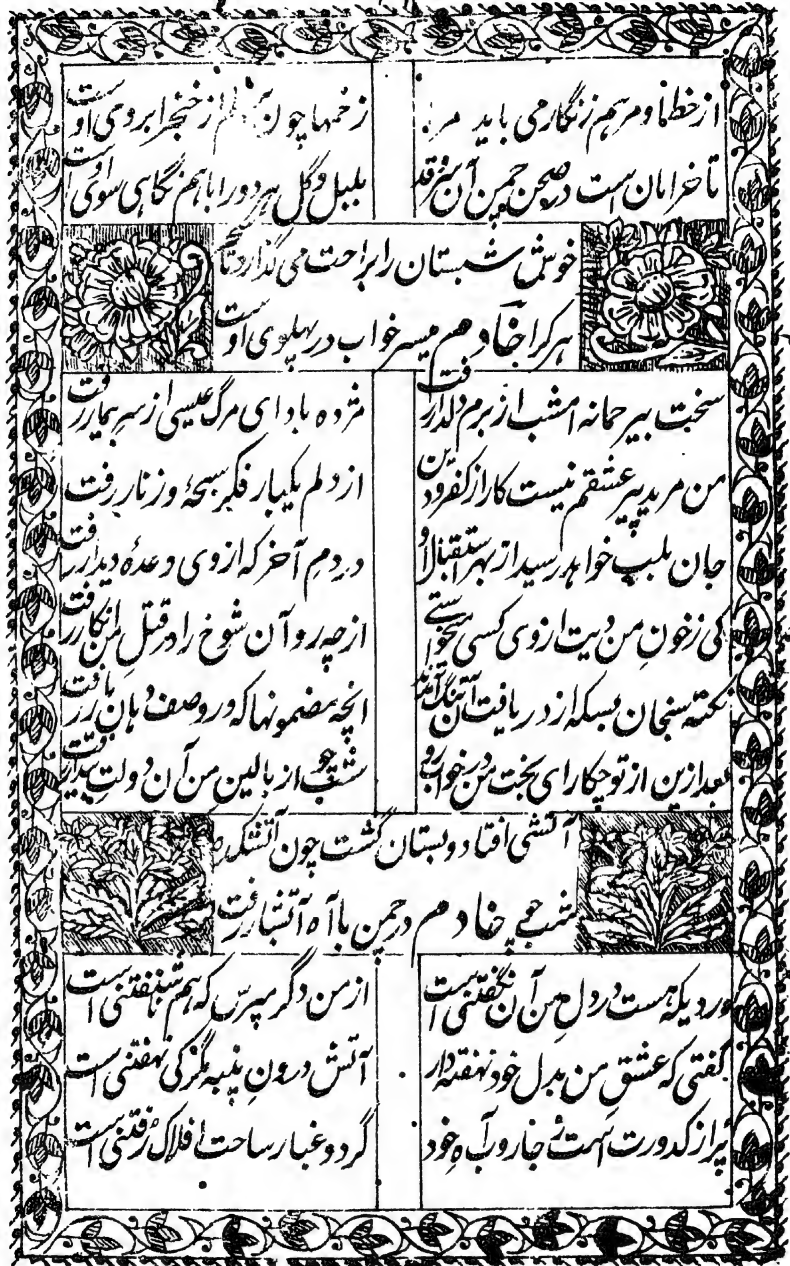 از خط او مرهم زنگار می باید مرا زخمها چون از خنجر ابروی اوست
تا خرامان است در صحن چمن آن سرو قد بلبل و گل هر دو را باهم نگاهی سوی اوست
خوش شبستان را براحت می گذارد تا
هر کرا خادم میسر خواب در پهلوی اوست
سخت بیرحمانه امشب از برم دلدار رفت مژده باد ای مرگ عیسی از سر بیمار رفت
من مرید پیر عشقم نیست کار از کفر و دین از دلم یکبار فکر سبحهٔ و زنار رفت
جان بلب خواهد رسید از بهر استقبال او در دمِ آخر که از وی وعدهٔ دیدار رفت
کی ز خونِ من دیت از وی کسی میخواستے از چه رو آن شوخ را در قتلِ من انکار رفت
نکته سنجان بسکه از دریافت آن تنگ آمدند انچه مضمونها که در وصف دهان یار رفت
بعد ازین از تو چکار ای بخت من در خواب رو شب چو از بالین من آن دولتِ بیدار رفت
آتشی افتاد و بستان گشت چون آتشکده
شب چو خادم در چمن با آه آتشبار رفت
دردیکه هست در دلِ من آن نگفتنی است از من دگر مپرس که هم ناشنفتنی است
گفتی که عشق من بدل خود نهفته دار آتش درونِ پنبه مگر کی نهفتنی است
پر از کدورت است ز جاروب آهِ خود گرد و غبار ساحت افلاک رُفتنی است